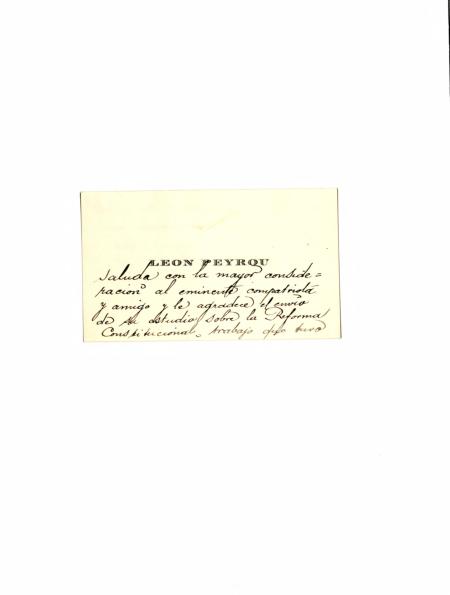 LEON PEYROU
saluda con la mayor conside=
racion al eminente compatriota
y amigo y le agradece el envio
de su estudio sobre la Reforma
Constitucional, trabajo que tuvo